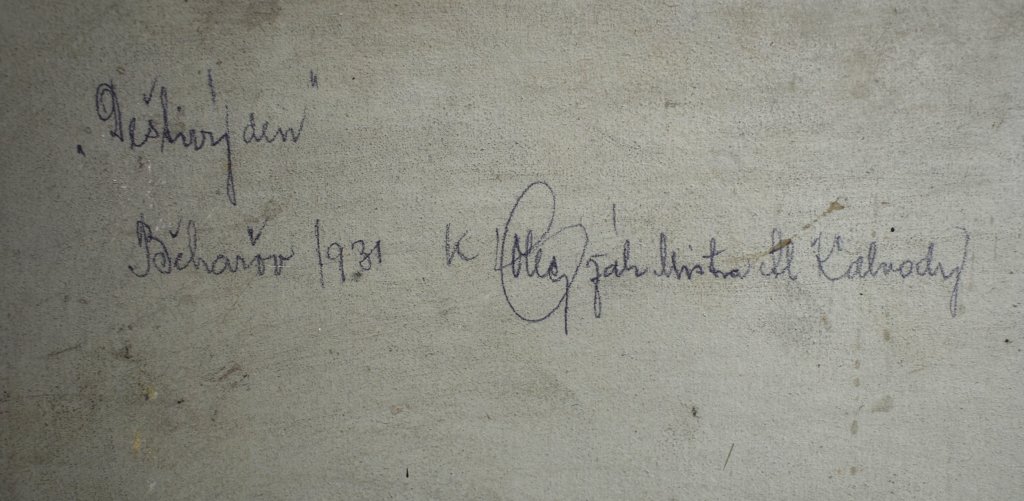 „Deštivý den"
Běchařov 1931 K žák Mistra Al Kalvody